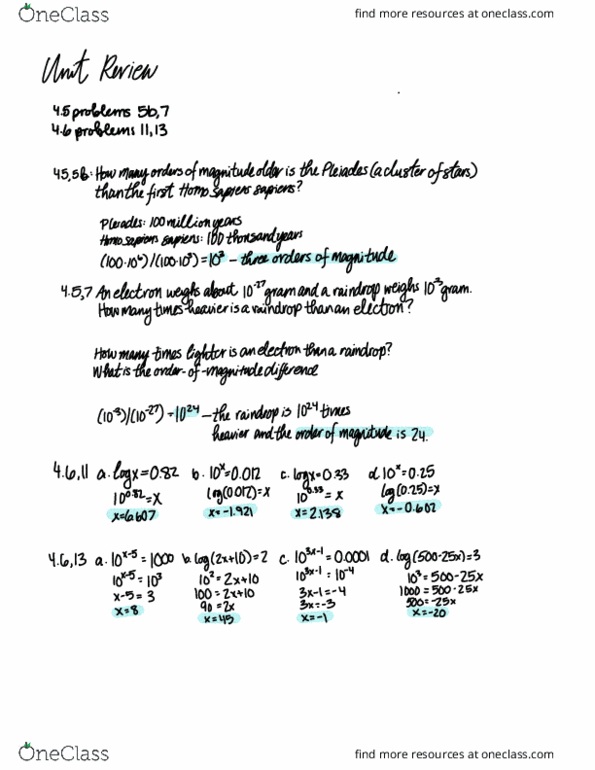 OneClass
find more resources at oneclass.com
Unit Review
4.5 problems 5b, 7
4.6 problems 11, 13
4.5, 5b: How many orders of magnitude older is the Pleiades (a cluster of stars)
than the first Homo sapiens sapiens?
Pleiades: 100 million years
Homo sapiens sapiens: 100 thousand years
(100·10⁶)/(100·10³) = 10³ – three orders of magnitude
4.5, 7 An electron weighs about 10⁻²⁷ gram and a raindrop weighs 10⁻³ gram.
How many times heavier is a raindrop than an electron?
How many times lighter is an electron than a raindrop?
What is the order-of-magnitude difference
(10⁻³)/(10⁻²⁷) = 10²⁴ – the raindrop is 10²⁴ times
heavier and the order of magnitude is 24.
4.6, 11 a. log x = 0.82 b. 10ˣ = 0.012 c. log x = 0.33 d. 10ˣ = 0.25
10^0.82 = x log(0.012) = x 10^0.33 = x log(0.25) = x
x = 6.607 x = -1.921 x = 2.138 x = -0.602
4.6, 13 a. 10ˣ⁻⁵ = 1000 b. log(2x+10) = 2 c. 10³ˣ⁻¹ = 0.0001 d. log(500-25x) = 3
10ˣ⁻⁵ = 10³ 10² = 2x+10 10³ˣ⁻¹ = 10⁻⁴ 10³ = 500-25x
x-5 = 3 100 = 2x+10 3x-1 = -4 1000 = 500-25x
x = 8 90 = 2x 3x = -3 500 = -25x
x = 45 x = -1 x = -20
OneClass
find more resources at oneclass.com